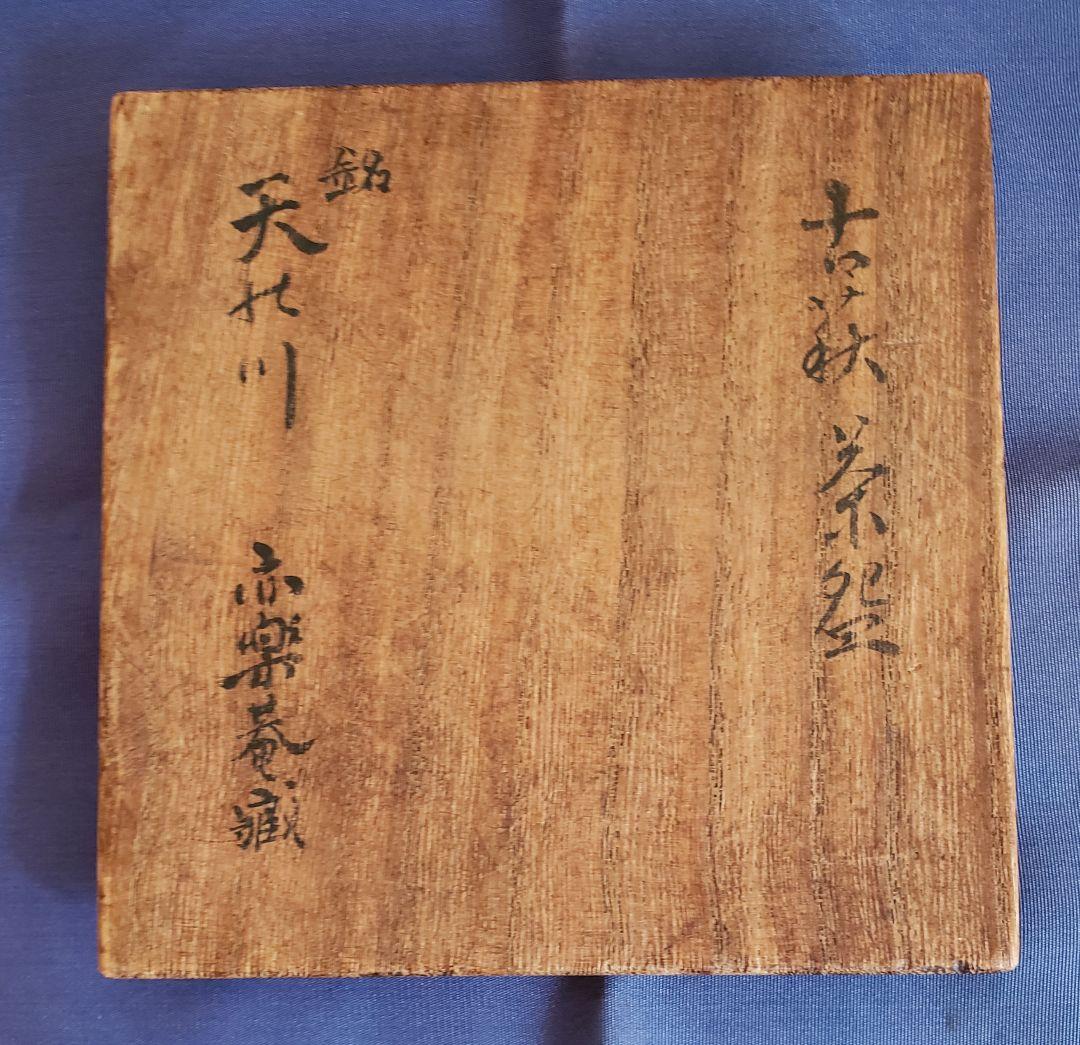 古萩 茶盌
銘
天の川 亦楽菴蔵